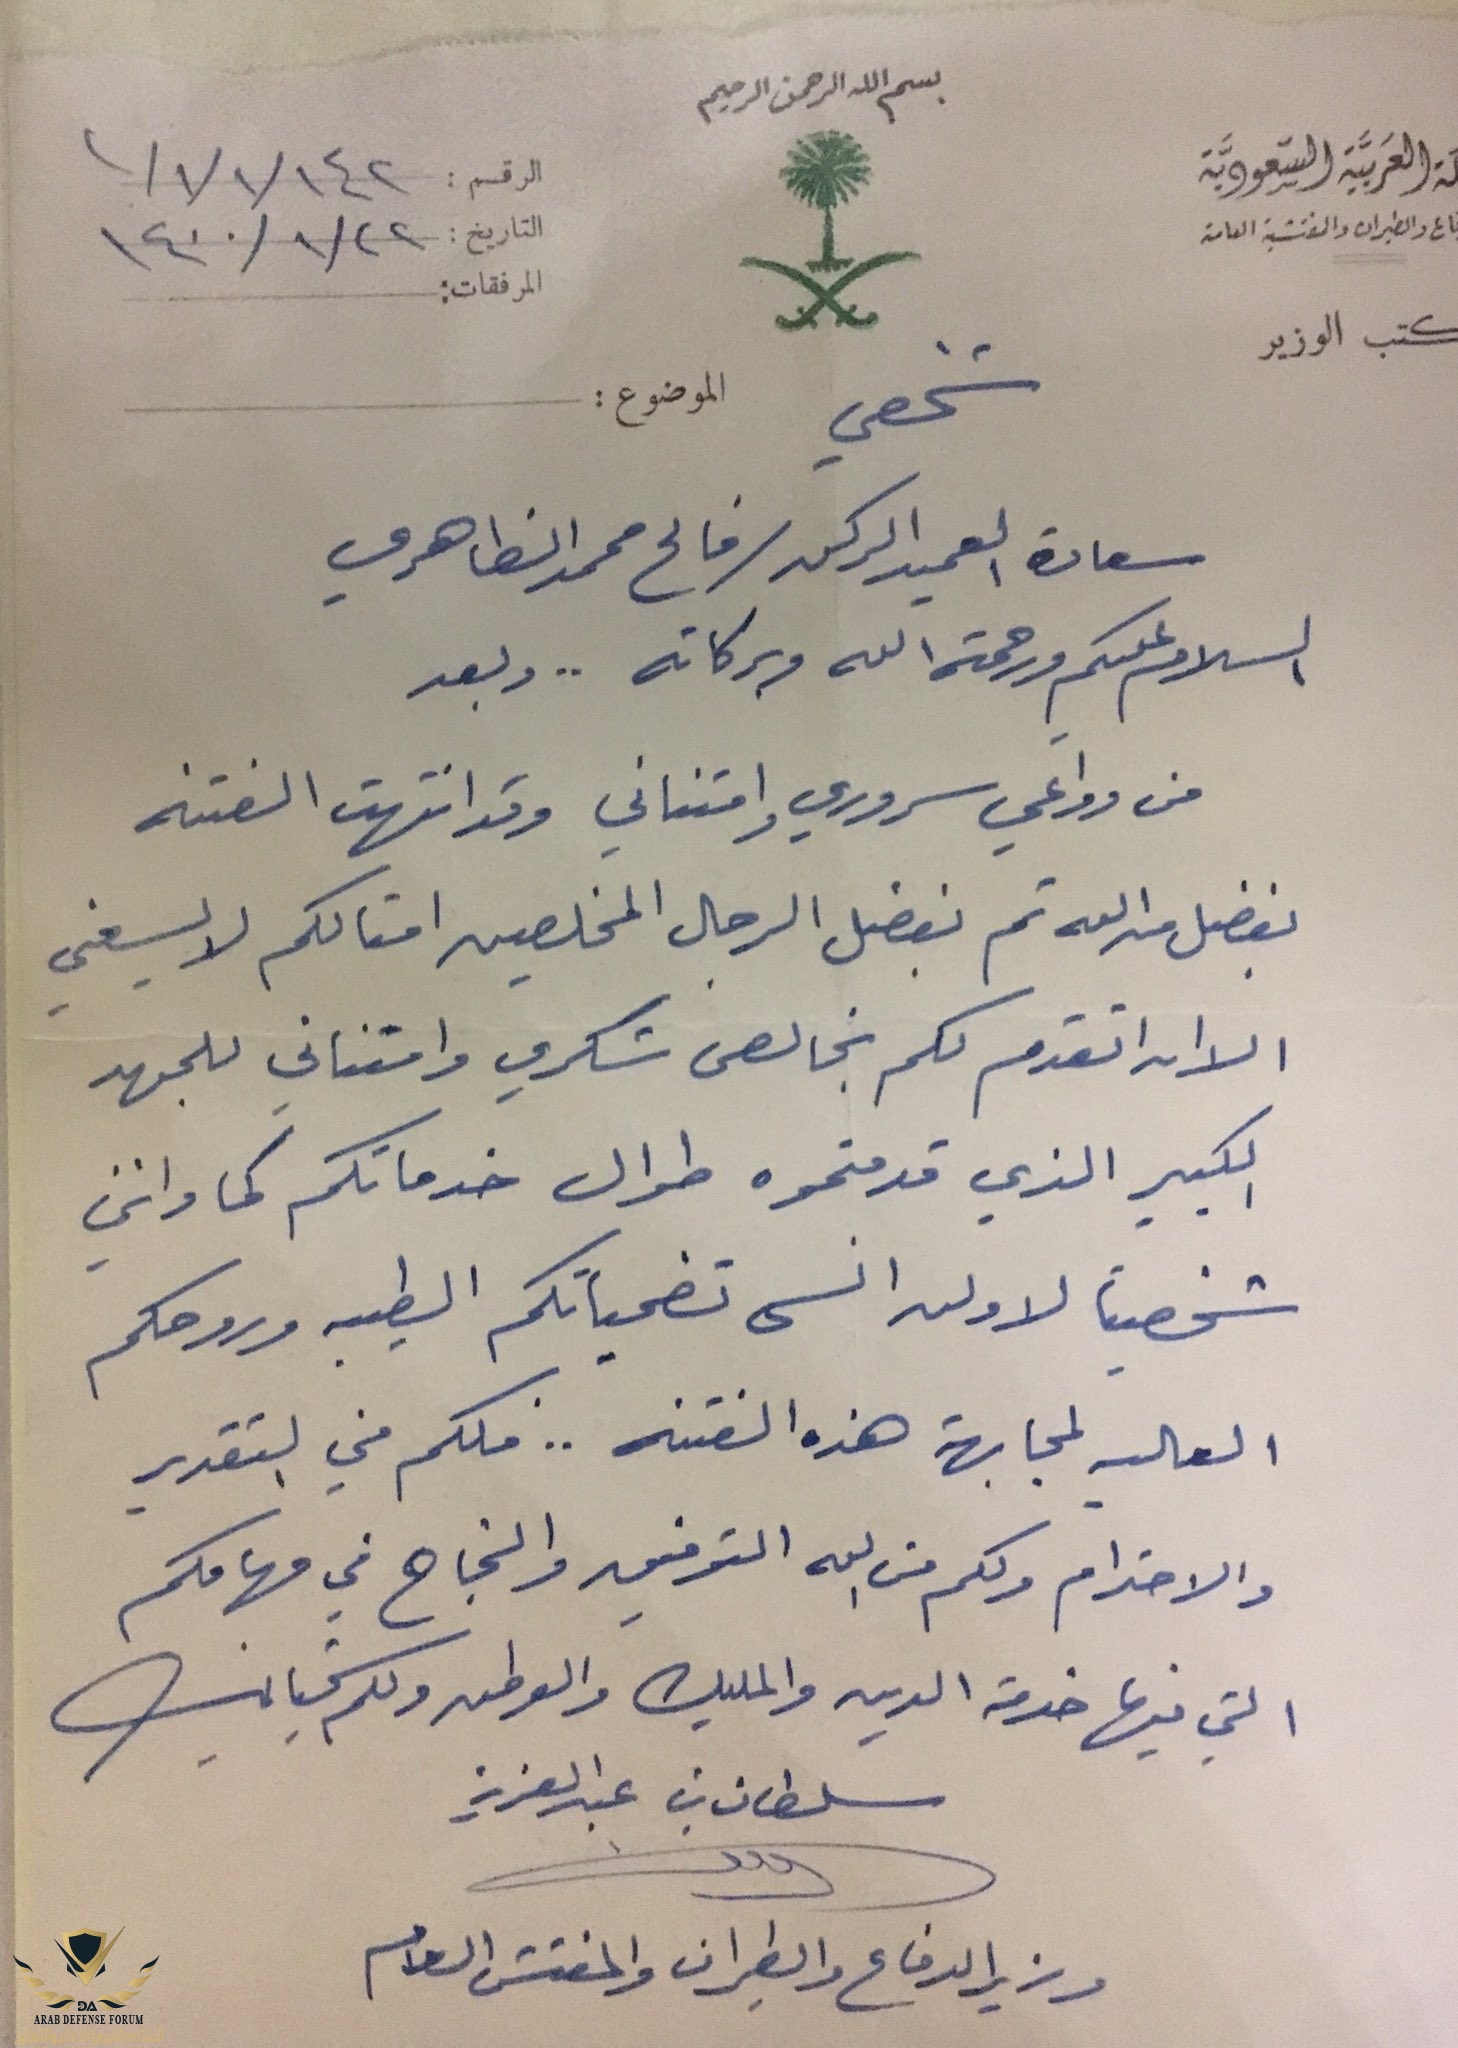 بسم الله الرحمن الرحيم
العربية السعودية
والطيران والمفتشية العامة
كتب الوزير
الرقم: ١/١/١/١٤٢
التاريخ: ١٤٠٠/١/٢٢
المرفقات:
الموضوع:
شخصي
سعادة العميد الركن / فالح محمد الظاهري
السلام عليكم ورحمة الله وبركاته .. وبعد
من دواعي سروري وامتناني وقد انتهت الفتنه
بفضل من الله ثم بفضل الرجال المخلصين امثالكم لا يسعني
الا ان اتقدم لكم بخالص شكري وامتناني للجهد
الكبير الذي قدمتموه طوال خدماتكم كما وانني
شخصياً لا ولن انسى تضحياتكم الطيبه وروحكم
العاليه لمجابهة هذه الفتنه .. فلكم مني التقدير
والاحترام ولكم من الله التوفيق والنجاح في مهامكم
التي فيها خدمة الدين والمليك والوطن ولكم تحياتي
سلطان بن عبدالعزيز
وزير الدفاع والطيران والمفتش العام
DA
ARAB DEFENSE FORUM